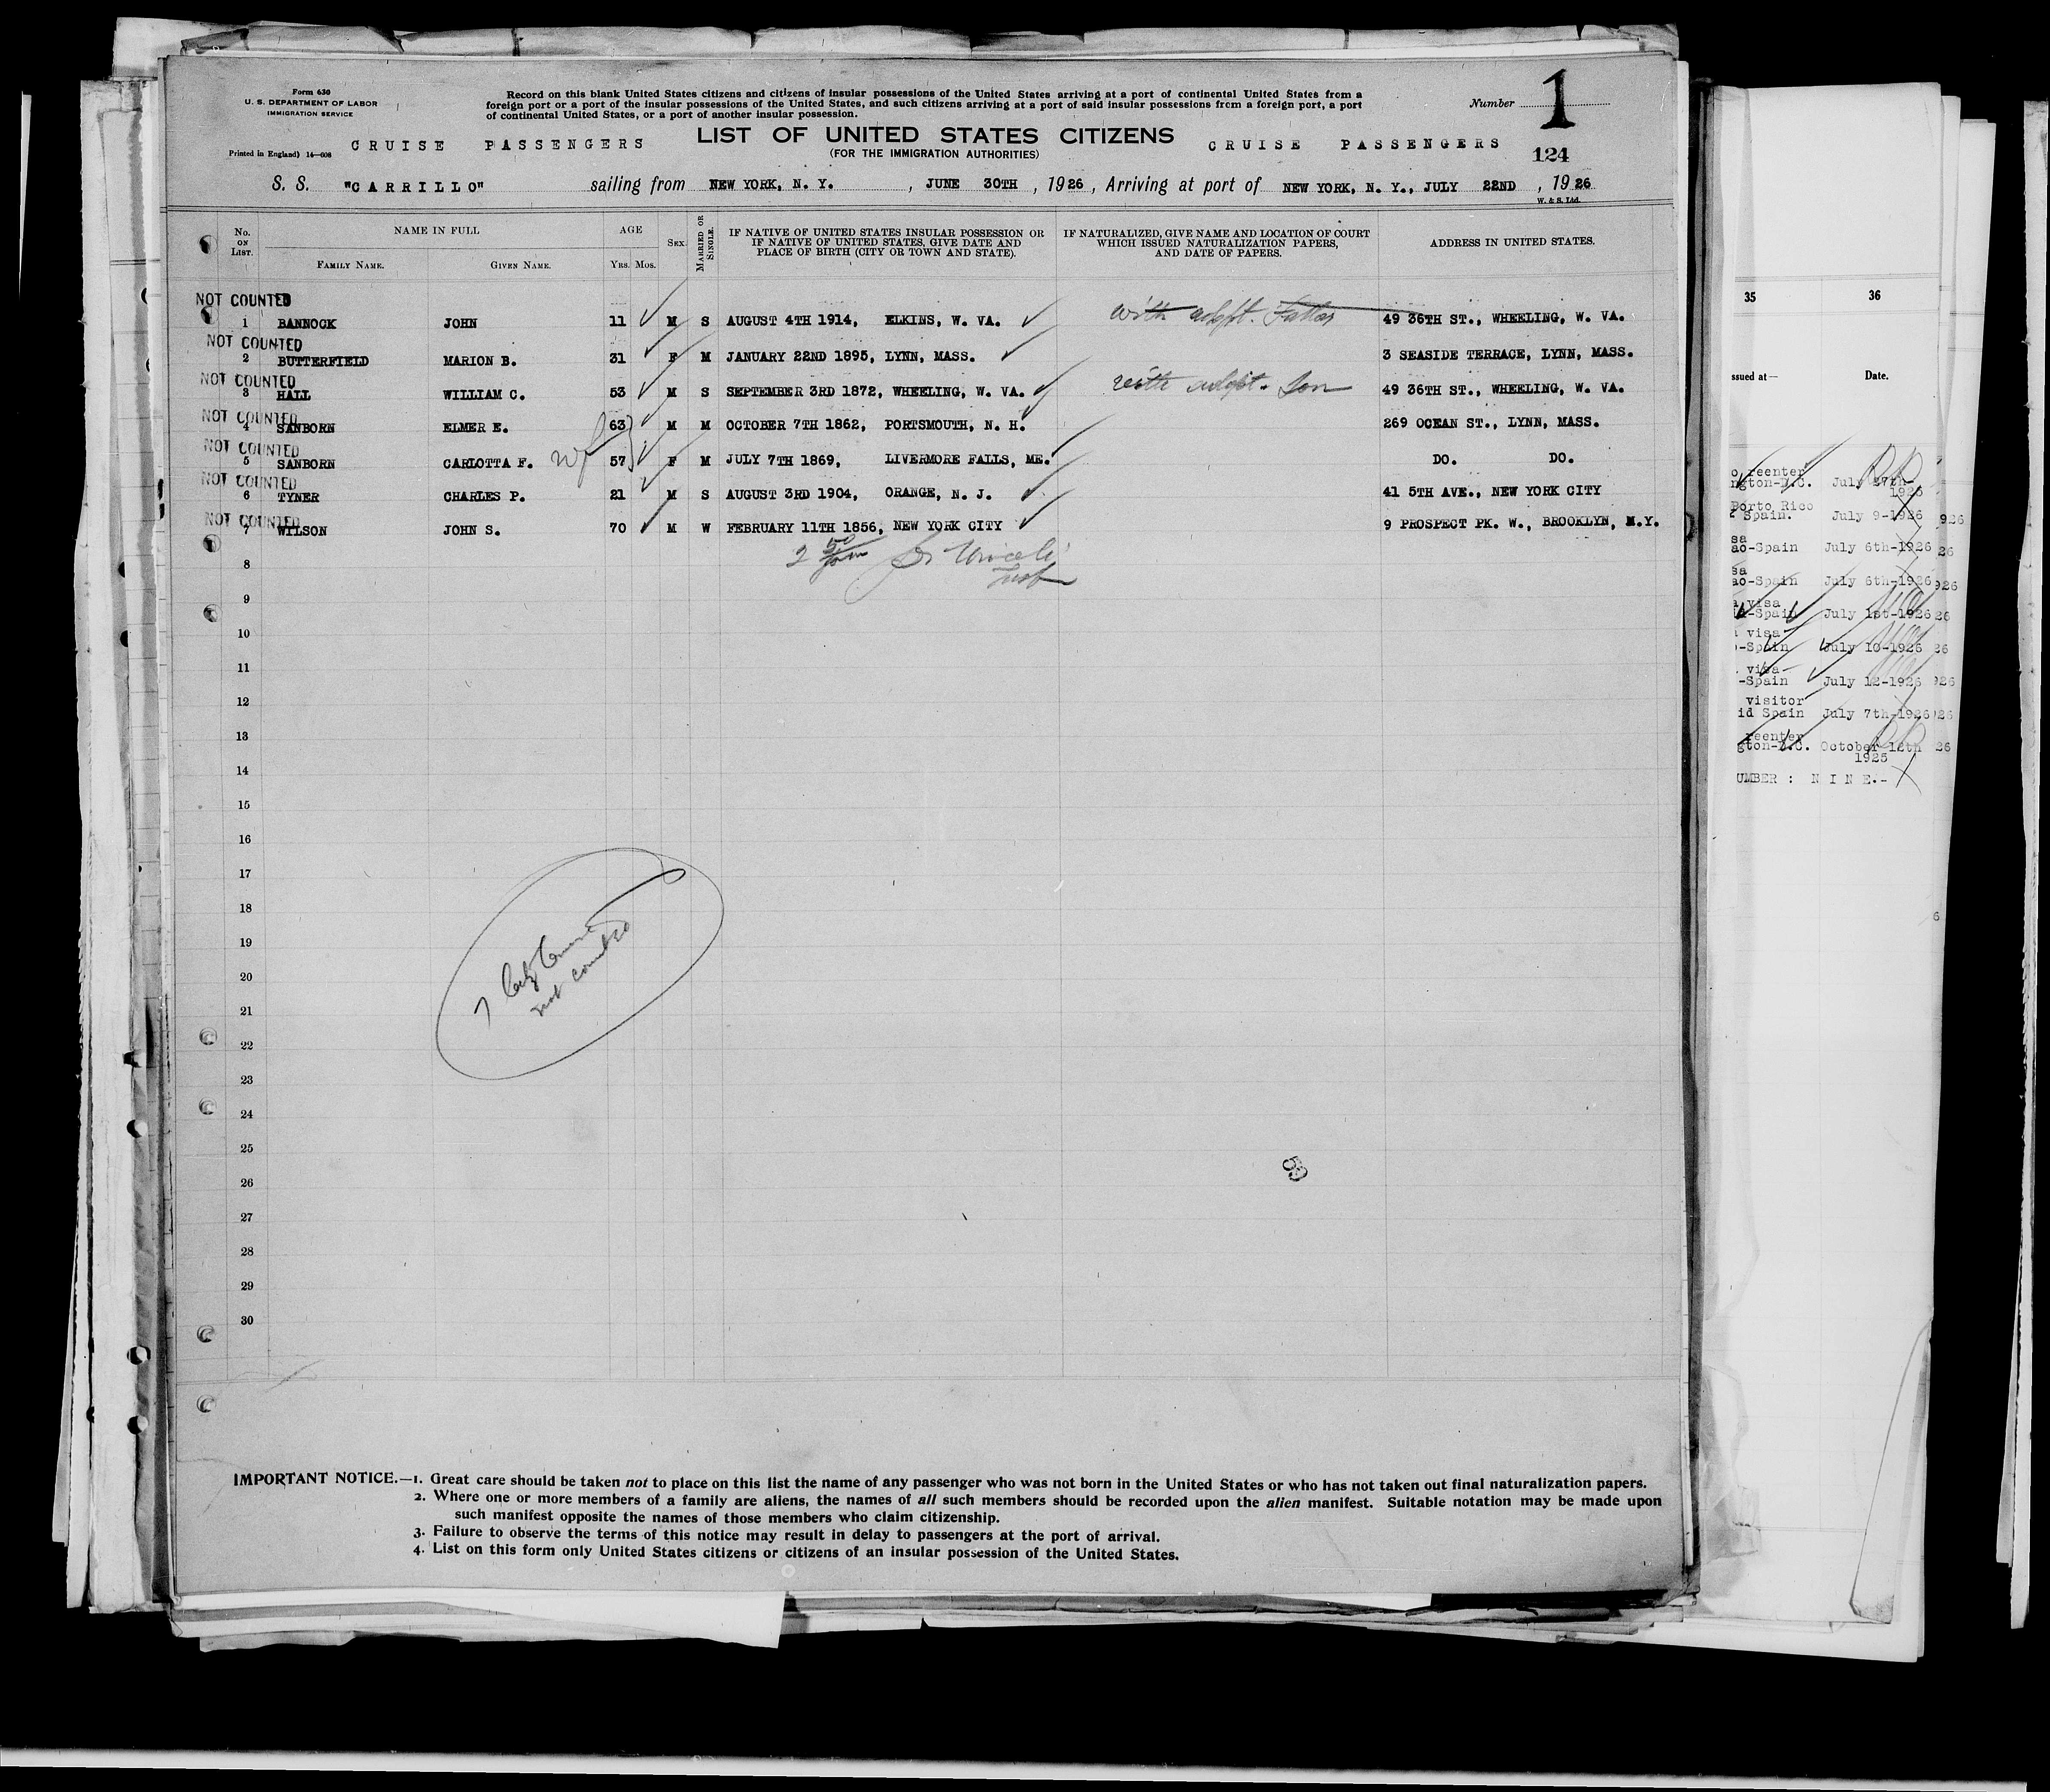 Form 630
U. S. DEPARTMENT OF LABOR
IMMIGRATION SERVICE
Printed in England) 14—608
Record on this blank United States citizens and citizens of insular possessions of the United States arriving at a port of continental United States from a
foreign port or a port of the insular possessions of the United States, and such citizens arriving at a port of said insular possessions from a foreign port, a port
of continental United States, or a port of another insular possession.
Number 1
124
CRUISE PASSENGERS LIST OF UNITED STATES CITIZENS CRUISE PASSENGERS
(FOR THE IMMIGRATION AUTHORITIES)
S. S. "CARRILLO" sailing from NEW YORK, N. Y. , JUNE 30TH , 1926 , Arriving at port of NEW YORK, N. Y., JULY 22ND , 1926
W. & S. Ltd.
No. ON LIST. NAME IN FULL AGE SEX. MARRIED OR SINGLE. IF NATIVE OF UNITED STATES INSULAR POSSESSION OR IF NATIVE OF UNITED STATES, GIVE DATE AND PLACE OF BIRTH (CITY OR TOWN AND STATE). IF NATURALIZED, GIVE NAME AND LOCATION OF COURT WHICH ISSUED NATURALIZATION PAPERS, AND DATE OF PAPERS. ADDRESS IN UNITED STATES.
FAMILY NAME. GIVEN NAME. YRS. MOS.
NOT COUNTED
1 BANNOCK JOHN 11 M S AUGUST 4TH 1914, ELKINS, W. VA. with adopt. Father 49 36TH ST., WHEELING, W. VA.
NOT COUNTED
2 BUTTERFIELD MARION B. 31 F M JANUARY 22ND 1895, LYNN, MASS. 3 SEASIDE TERRACE, LYNN, MASS.
NOT COUNTED
3 HALL WILLIAM C. 53 M S SEPTEMBER 3RD 1872, WHEELING, W. VA. with adopt. Son 49 36TH ST., WHEELING, W. VA.
NOT COUNTED
4 SANBORN ELMER E. 63 M M OCTOBER 7TH 1862, PORTSMOUTH, N. H. 269 OCEAN ST., LYNN, MASS.
NOT COUNTED
5 SANBORN CARLOTTA F. wf 57 F M JULY 7TH 1869, LIVERMORE FALLS, ME. DO. DO.
NOT COUNTED
6 TYNER CHARLES P. 21 M S AUGUST 3RD 1904, ORANGE, N. J. 41 5TH AVE., NEW YORK CITY
NOT COUNTED
7 WILSON JOHN S. 70 M W FEBRUARY 11TH 1856, NEW YORK CITY 9 PROSPECT PK. W., BROOKLYN, N.Y.
8
9
10
11
12
13
14
15
16
17
18
19
20
21
22
23
24
25
26
27
28
29
30
7
not counted
63
IMPORTANT NOTICE.—1. Great care should be taken not to place on this list the name of any passenger who was not born in the United States or who has not taken out final naturalization papers.
2. Where one or more members of a family are aliens, the names of all such members should be recorded upon the alien manifest. Suitable notation may be made upon
such manifest opposite the names of those members who claim citizenship.
3. Failure to observe the terms of this notice may result in delay to passengers at the port of arrival.
4. List on this form only United States citizens or citizens of an insular possession of the United States.
35 36
ssued at— Date.
o reenter
ngton-D.C. July 27th-
1925
Porto Rico
Spain. July 9-1926 926
sa
ao-Spain July 6th-1926 26
sa
ao-Spain July 6th-1926 926
visa
-Spain July 1st-1926 26
visa
-Spain July 10-1926 26
visa
-Spain July 12-1926 926
visitor
id Spain July 7th-1926 26
reenter
gton-D.C. October 12th 26
1925
UMBER : N I N E.-
6